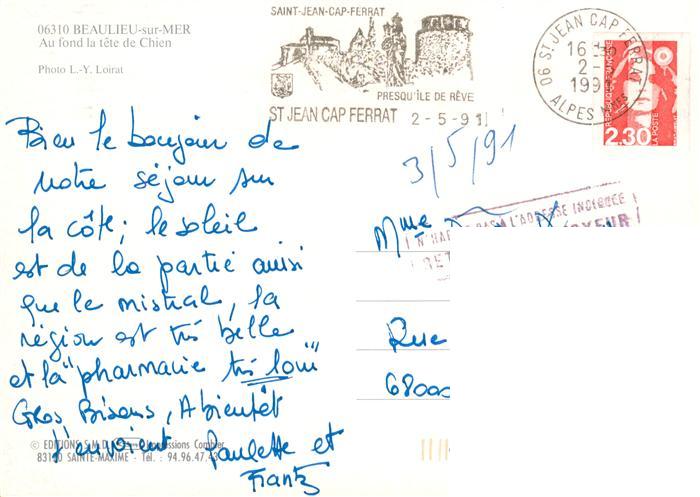 06310 BEAULIEU-sur-MER
Au fond la tête de Chien
Photo L.-Y. Loirat
SAINT-JEAN-CAP-FERRAT
PRESQU'ILE DE RÊVE
ST JEAN CAP FERRAT 2-5-91
06 ST JEAN CAP FERRAT
16
2-5
199
ALPES
REPUBLIQUE FRANÇAISE
LA POSTE
2.30
3/5/91
Bien le bonjour de
notre séjour sur
la côte; le soleil
est de la partie aussi
que le mistral, la
région est très belle
et la "pharmacie très loin"
Gros Bisous, A bientôt
Paulette et
Frantz
Mme
L'ADRESSE INDIQUEE
RET
Rue
68000
© EDITIONS S.M.D. Impressions Combier
83120 SAINTE-MAXIME - Tél. : 94.96.47.43